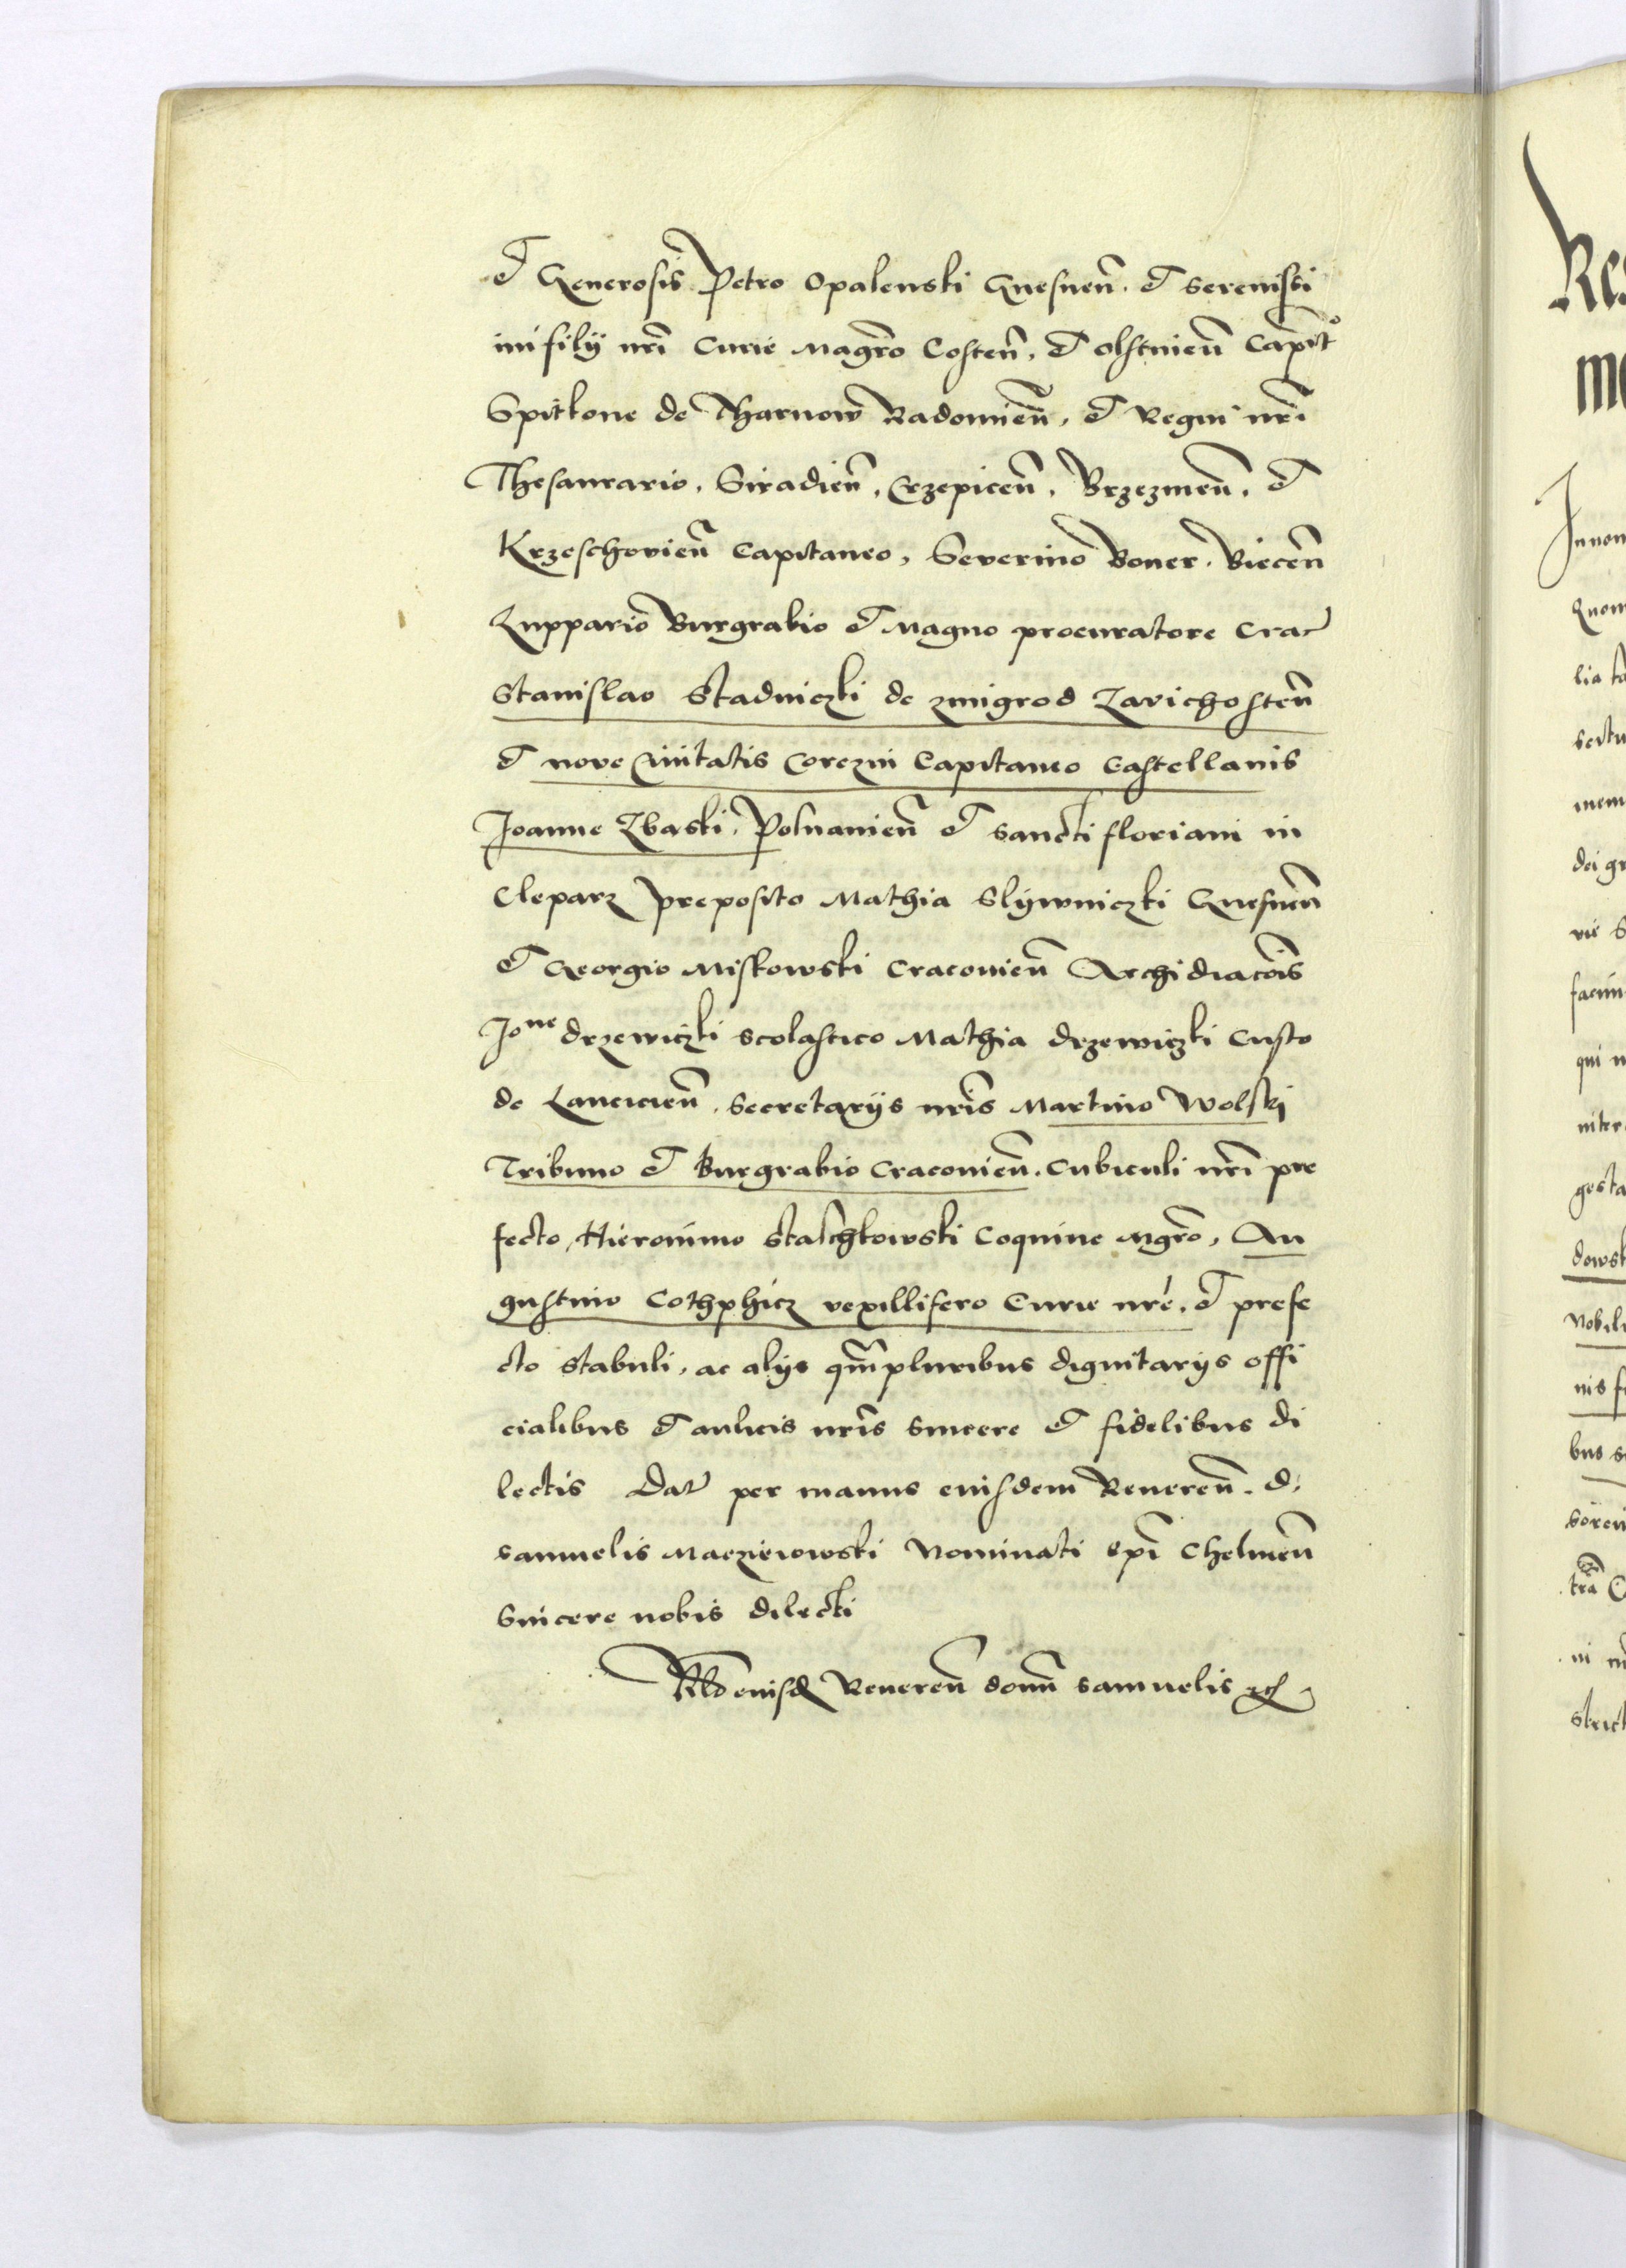 et Generosis Petro Opalenski Gnesnen̄. et Serenissi
mi filij nr̄i Curie Magr̄o Costen̄. et Olstinien̄ Capit̄o
Spitkone de Tharnow Radomien̄, et Regni nr̄i
Thesaurario, Siradien̄, Crzepicen̄, Brzezinen̄. et
Krzeschovien̄ Capitaneo, Severino Boner. Biecen̄
Zuppario Burgrabio et Magno procuratore Crac
Stanislao Stadniczki de Zmigrod Zavichosten̄
et nove Civitatis Corczin Capitaneo Castellanis
Joanne Zbaski. Posnanien̄ et sancti floriani in
Cleparz preposito Mathia Slÿwniczki Gnesnen̄
et Georgio Miskowski Cracovien̄ Archidiacōis
Jone drzewiczki scolastico Mathia drzewiczki Custo
de Lancicien̄. Secretarijs nr̄is Martino Wolski
Tribuno et Burgrabio Cracovien̄. Cubiculi nr̄i pre
fecto, Hieronimo Staschkowski Coquine Mgr̄o, Au
gustino Cothphicz vexillifero Curie nr̄e. et prefe
cto stabuli, ac alijs qm̄pluribus dignitarijs offi
cialibus et aulicis nr̄is sincere et fidelibus di
lectis Dat per manus eiusdem Reveren̄. d.
samuelis Macziewowski Nominati ep̄i Chelmen̄
sincere nobis dilecti
Rl̄o eiusd Reveren̄ domn̄ samuelis etc